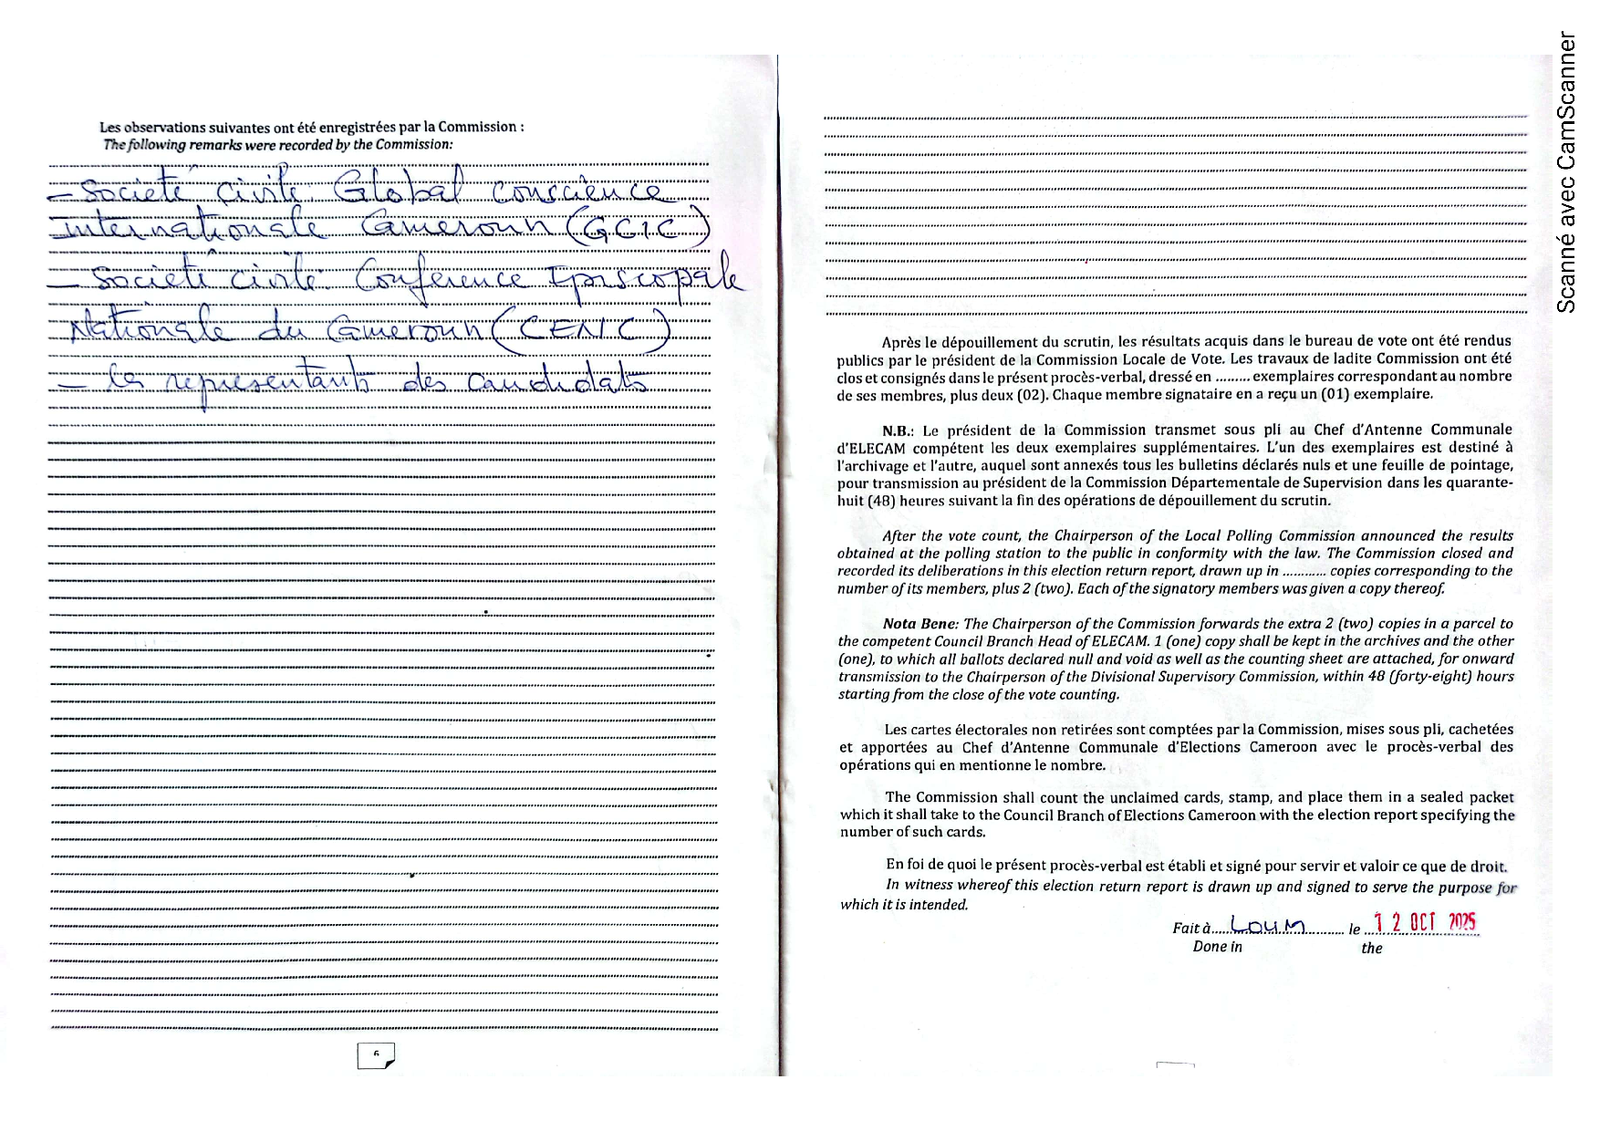 Les observations suivantes ont été enregistrées par la Commission :
The following remarks were recorded by the Commission:
- Société civile Global conscience
internationale Cameroun (GCIC)
- Société civile Conférence Episcopale
Nationale du Cameroun (CENC)
- les representants des candidats
6
Après le dépouillement du scrutin, les résultats acquis dans le bureau de vote ont été rendus
publics par le président de la Commission Locale de Vote. Les travaux de ladite Commission ont été
clos et consignés dans le présent procès-verbal, dressé en ......... exemplaires correspondant au nombre
de ses membres, plus deux (02). Chaque membre signataire en a reçu un (01) exemplaire.
N.B.: Le président de la Commission transmet sous pli au Chef d'Antenne Communale
d'ELECAM compétent les deux exemplaires supplémentaires. L'un des exemplaires est destiné à
l'archivage et l'autre, auquel sont annexés tous les bulletins déclarés nuls et une feuille de pointage,
pour transmission au président de la Commission Départementale de Supervision dans les quarante-
huit (48) heures suivant la fin des opérations de dépouillement du scrutin.
After the vote count, the Chairperson of the Local Polling Commission announced the results
obtained at the polling station to the public in conformity with the law. The Commission closed and
recorded its deliberations in this election return report, drawn up in ............ copies corresponding to the
number of its members, plus 2 (two). Each of the signatory members was given a copy thereof.
Nota Bene: The Chairperson of the Commission forwards the extra 2 (two) copies in a parcel to
the competent Council Branch Head of ELECAM. 1 (one) copy shall be kept in the archives and the other
(one), to which all ballots declared null and void as well as the counting sheet are attached, for onward
transmission to the Chairperson of the Divisional Supervisory Commission, within 48 (forty-eight) hours
starting from the close of the vote counting.
Les cartes électorales non retirées sont comptées par la Commission, mises sous pli, cachetées
et apportées au Chef d'Antenne Communale d'Elections Cameroon avec le procès-verbal des
opérations qui en mentionne le nombre.
The Commission shall count the unclaimed cards, stamp, and place them in a sealed packet
which it shall take to the Council Branch of Elections Cameroon with the election report specifying the
number of such cards.
En foi de quoi le présent procès-verbal est établi et signé pour servir et valoir ce que de droit.
In witness whereof this election return report is drawn up and signed to serve the purpose for
which it is intended.
Fait à..... LOUM .......... le ... 12 OCT 2025
Done in the
Scanné avec CamScanner